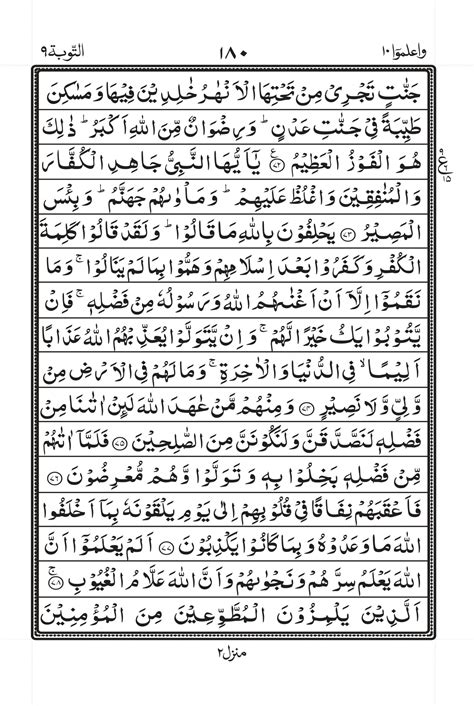 واعلموا ۱۰ ۱۸۰ التوبة ۹
جَنّٰتٍ تَجْرِیْ مِنْ تَحْتِهَا الْاَنْهٰرُ خٰلِدِیْنَ فِیْهَا وَ مَسٰكِنَ
طَیِّبَةً فِیْ جَنّٰتِ عَدْنٍ ؕ وَ رِضْوَانٌ مِّنَ اللّٰهِ اَكْبَرُ ؕ ذٰلِكَ
هُوَ الْفَوْزُ الْعَظِیْمُ ﴿۷۲﴾ یٰۤاَیُّهَا النَّبِیُّ جَاهِدِ الْكُفَّارَ
وَ الْمُنٰفِقِیْنَ وَ اغْلُظْ عَلَیْهِمْ ؕ وَ مَاْوٰىهُمْ جَهَنَّمُ ؕ وَ بِئْسَ
الْمَصِیْرُ ﴿۷۳﴾ یَحْلِفُوْنَ بِاللّٰهِ مَا قَالُوْا ؕ وَ لَقَدْ قَالُوْا كَلِمَةَ
الْكُفْرِ وَ كَفَرُوْا بَعْدَ اِسْلَامِهِمْ وَ هَمُّوْا بِمَا لَمْ یَنَالُوْا ۚ وَ مَا
نَقَمُوْۤا اِلَّاۤ اَنْ اَغْنٰىهُمُ اللّٰهُ وَ رَسُوْلُهٗ مِنْ فَضْلِهٖ ۚ فَاِنْ
یَّتُوْبُوْا یَكُ خَیْرًا لَّهُمْ ۚ وَ اِنْ یَّتَوَلَّوْا یُعَذِّبْهُمُ اللّٰهُ عَذَابًا
اَلِیْمًا ۙ فِی الدُّنْیَا وَ الْاٰخِرَةِ ۚ وَ مَا لَهُمْ فِی الْاَرْضِ مِنْ
وَّلِیٍّ وَّ لَا نَصِیْرٍ ﴿۷۴﴾ وَ مِنْهُمْ مَّنْ عٰهَدَ اللّٰهَ لَىِٕنْ اٰتٰىنَا مِنْ
فَضْلِهٖ لَنَصَّدَّقَنَّ وَ لَنَكُوْنَنَّ مِنَ الصّٰلِحِیْنَ ﴿۷۵﴾ فَلَمَّاۤ اٰتٰىهُمْ
مِّنْ فَضْلِهٖ بَخِلُوْا بِهٖ وَ تَوَلَّوْا وَّ هُمْ مُّعْرِضُوْنَ ﴿۷۶﴾
فَاَعْقَبَهُمْ نِفَاقًا فِیْ قُلُوْبِهِمْ اِلٰى یَوْمِ یَلْقَوْنَهٗ بِمَاۤ اَخْلَفُوا
اللّٰهَ مَا وَعَدُوْهُ وَ بِمَا كَانُوْا یَكْذِبُوْنَ ﴿۷۷﴾ اَلَمْ یَعْلَمُوْۤا اَنَّ
اللّٰهَ یَعْلَمُ سِرَّهُمْ وَ نَجْوٰىهُمْ وَ اَنَّ اللّٰهَ عَلَّامُ الْغُیُوْبِ ﴿۷۸﴾ ۚ
اَلَّذِیْنَ یَلْمِزُوْنَ الْمُطَّوِّعِیْنَ مِنَ الْمُؤْمِنِیْنَ
منزل ۲